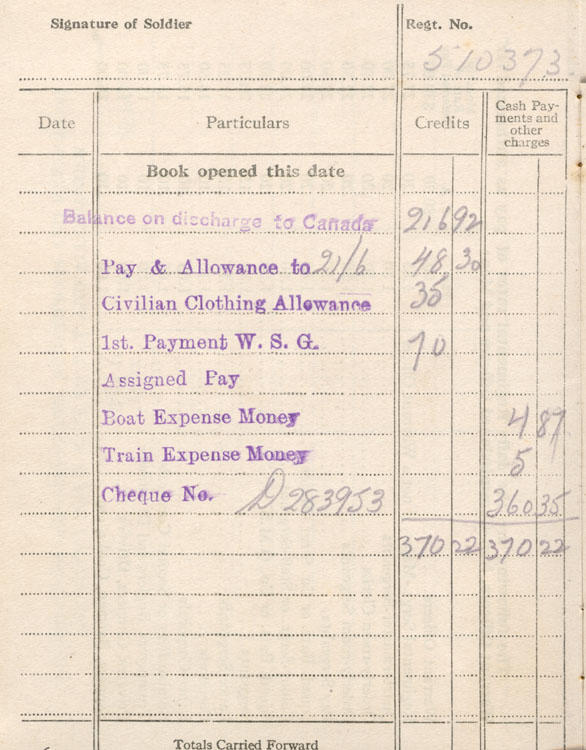 Signature of Soldier Regt. No.
510373
Date Particulars Credits Cash Pay-
ments and
other
charges
Book opened this date
Balance on discharge to Canada 216 92
Pay & Allowance to 21/6 48 30
Civilian Clothing Allowance 35
1st. Payment W. S. G. 70
Assigned Pay
Boat Expense Money 4 87
Train Expense Money 5
Cheque No. D 283953 360 35
370 22 370 22
Totals Carried Forward